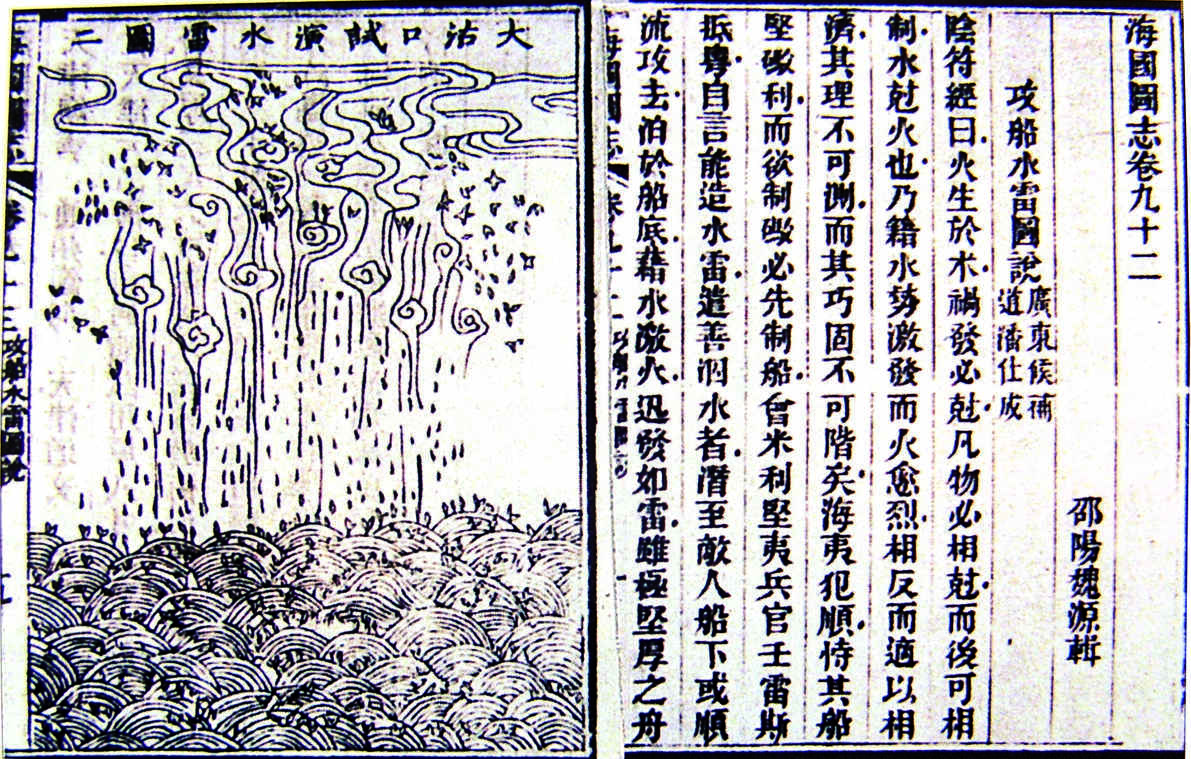 海國圖志卷九十二
邵陽魏源輯
攻船水雷圖說
廣東候補
道潘仕成
陰符經曰火生於木禍發必尅凡物必相尅而後可相
制水尅火也乃籍水勢激發而火愈烈相反而適以相
濟其理不可測而其巧固不可階矣海夷犯順恃其船
堅礮利而欲制礮必先制船會米利堅夷兵官壬雷斯
抵粵自言能造水雷遣善泅水者潛至敵人船下或順
流攻去泊於船底藉水激火迅發如雷雖極堅厚之舟
大沽口試演水雷圖二
攻船水雷圖說